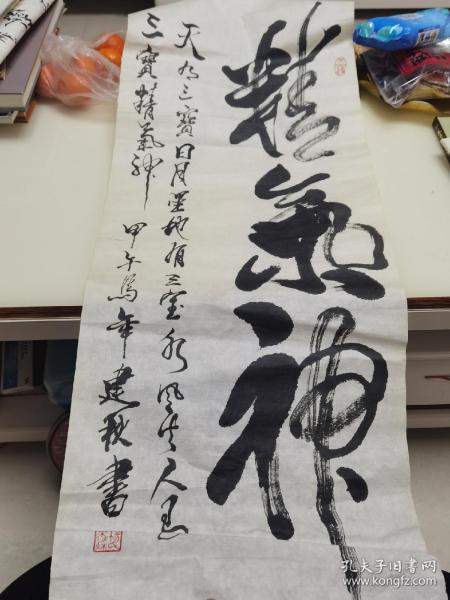 精氣神
天有三寶日月星地有三宝水風火人有
三寳精氣神 甲午馬年 建秋書
孔夫子旧书网
www.kongfz.com